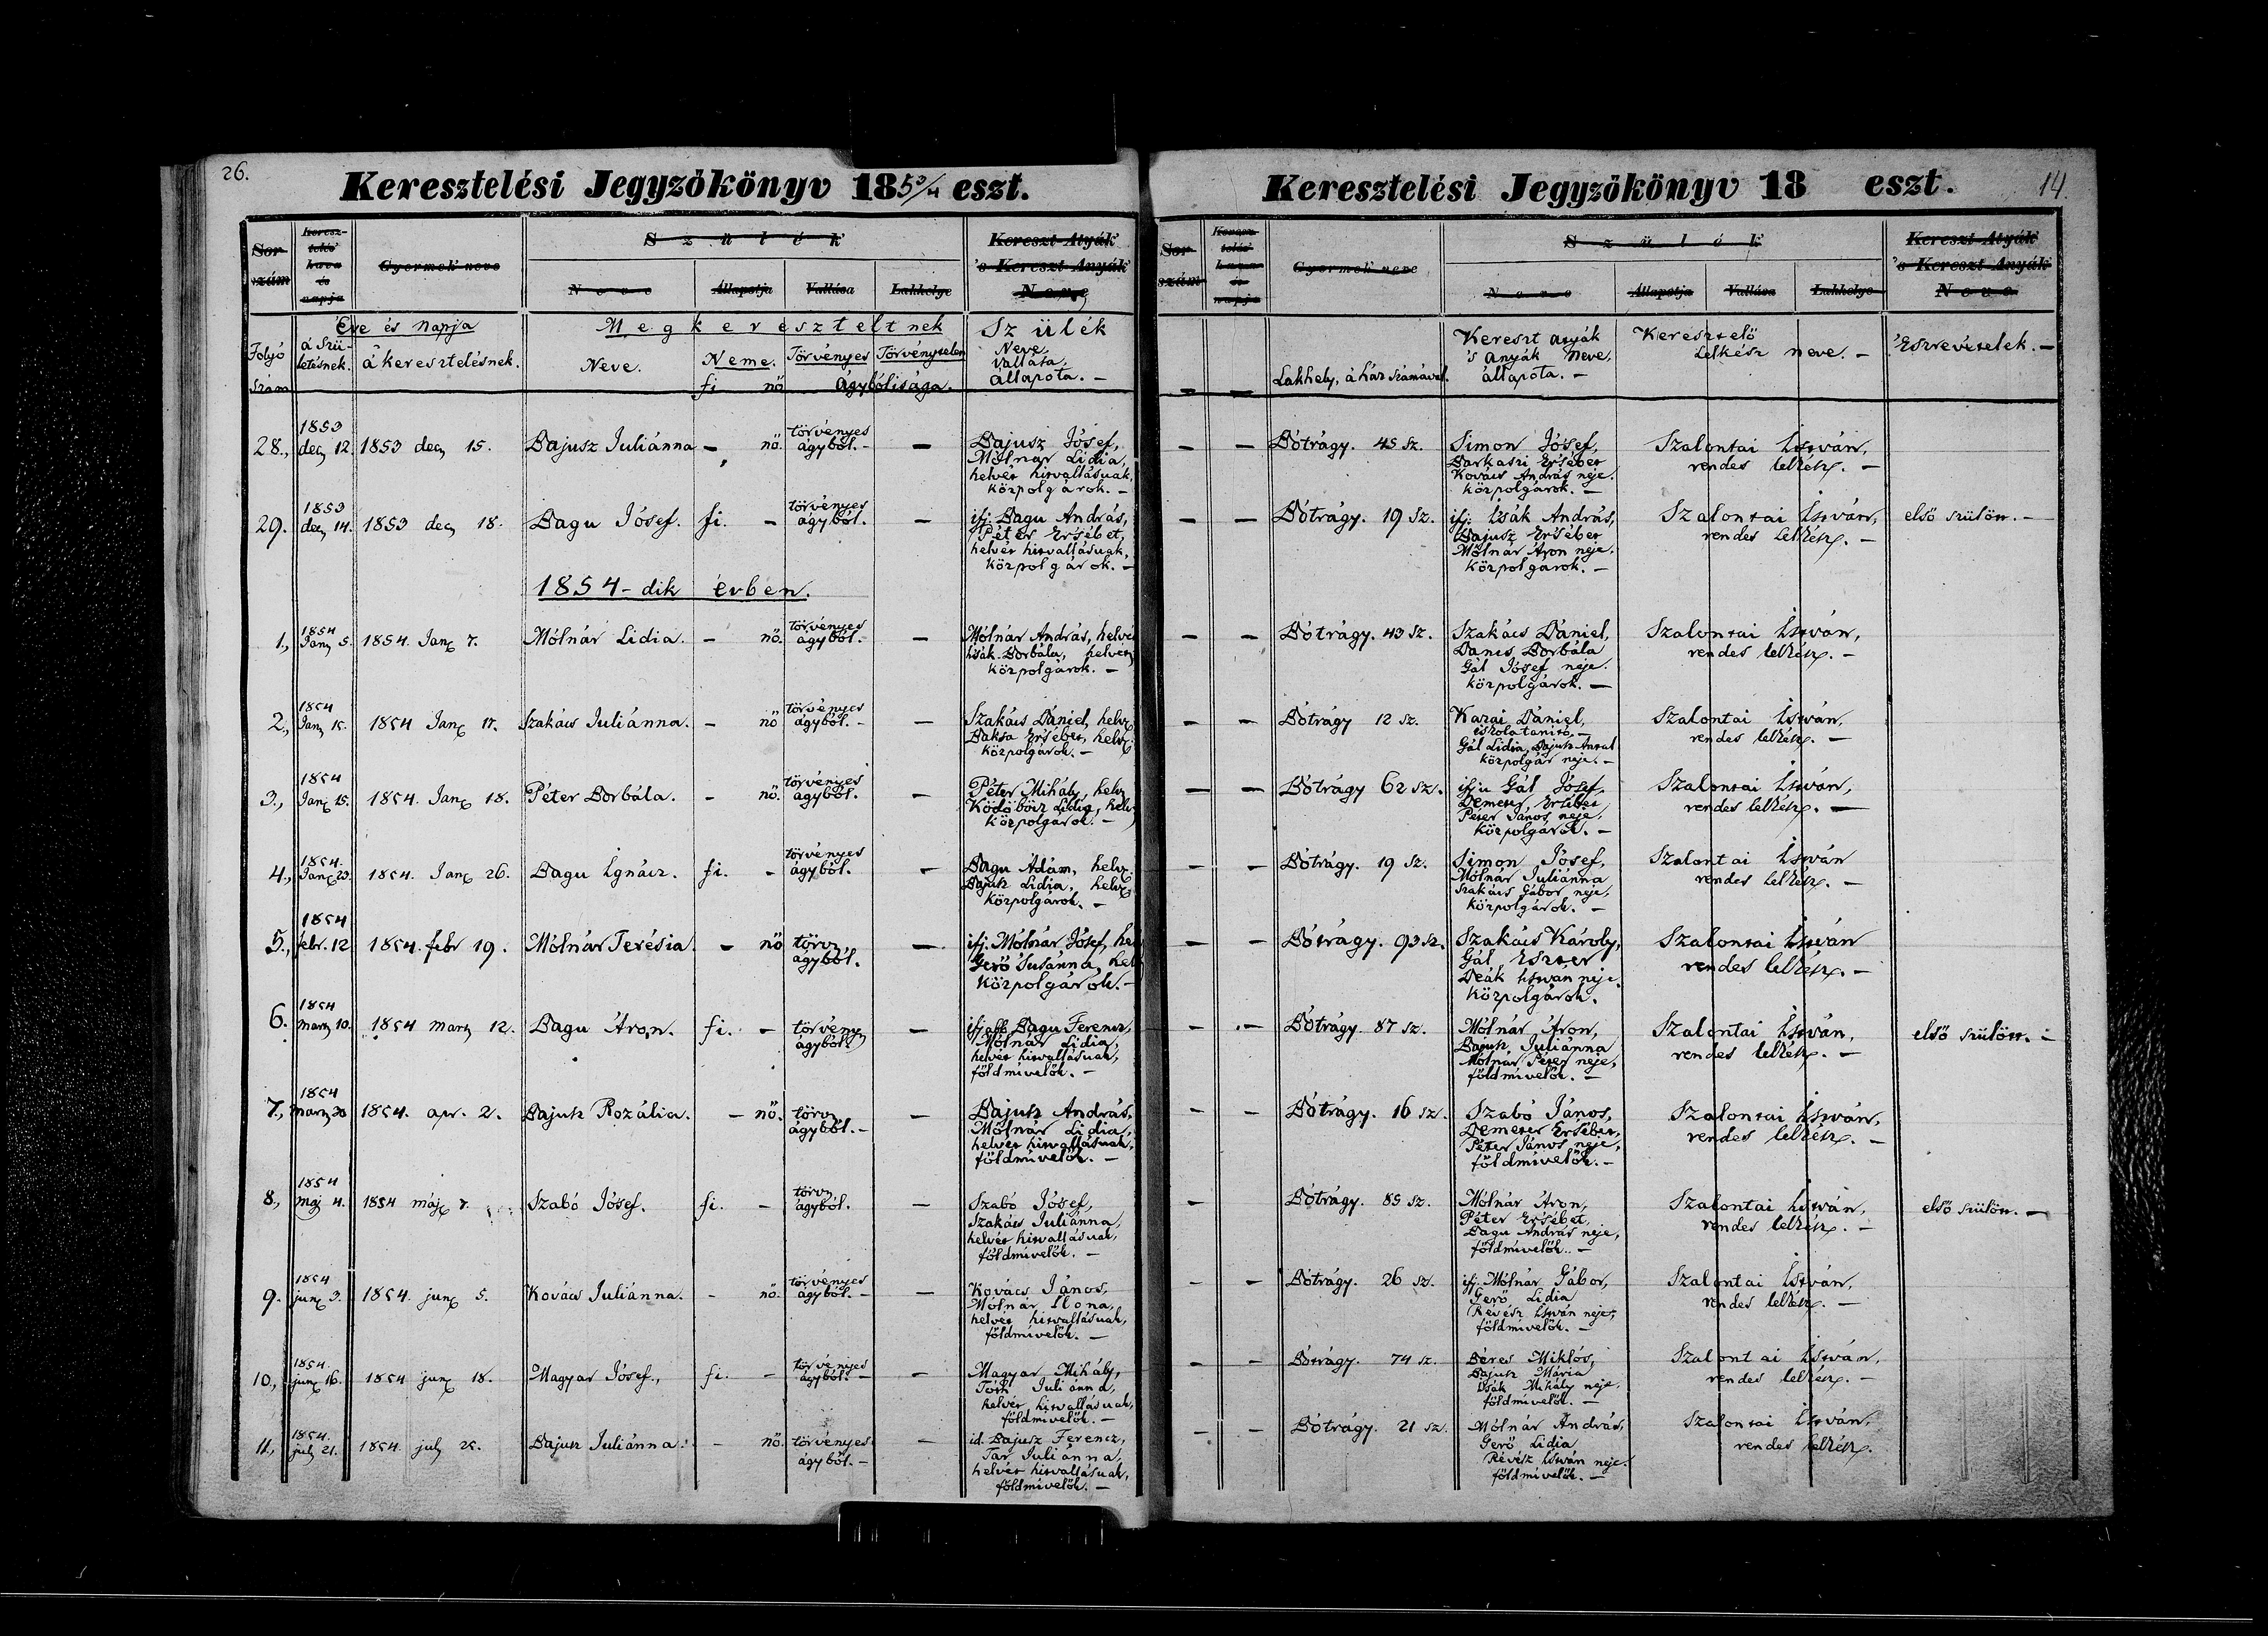 26.
Keresztelési Jegyzőkönyv 1853/4 eszt.
Sor-szám
Keresz-telés hava és napja
Gyermek neve
Szülék
Neve
Állapotja
Vallása
Lakhelye
Kereszt Atyák 's Kereszt Anyák Neve
Folyó szám
Eve és napja
á szü-letésnek.
á keresztelésnek.
Megkereszteltnek
Neve.
Neme.
fi nő
Törvényes Törvénytelen
ágybólisága.
Szülék
Neve,
vallása,
állapota. —
28., 1853 dec 12. 1853 dec 15. Bajusz Juliánna — nő. törvényes ágyból. — — Bajusz Jósef,
Mólnár Lidia,
helvét hitvallásuak,
közpolgárok. —
29. 1853 dec 14. 1853 dec 18. Bagu Jósef. fi. — törvényes ágyból. — ifj. Bagu András,
Péter Ersébet,
helvét hitvallásuak,
közpolgárok. —
1854-dik évben.
1., 1854 Jan 5. 1854. Jan 7. Mólnár Lidia. — nő. törvényes ágyból. — Mólnár András, helvé
Isák Borbála, helvét
közpolgárok. —
2., 1854 Jan 15. 1854 Jan 17. Szakács Juliánna. — nő törvényes ágyból. — — Szakács Dániel, helv
Baksa Ersébet, helv
közpolgárok. —
3., 1854 Jan 15. 1854. Jan 18. Péter Borbála. — nő. törvényes ágyból. — Péter Mihály, helv
Ködöböcz Lidia, helv
közpolgárok. —
4., 1854. Jan 23. 1854. Jan 26. Bagu Ignácz. fi. — törvényes ágyból. — Bagu Ádám, helv
Bajusz Lidia, helv
közpolgárok. —
5., 1854 febr. 12 1854. febr 19. Mólnár Terésia. — nő törv ágyból. — ifj. Mólnár Jósef, hel
Gerő Susánna, hel
közpolgárok. —
6. 1854 mart 10. 1854 mart 12. Bagu Áron. fi. — törvény ágyból. — ifjabb Bagu Ferencz,
Mólnár Lidia,
helvét hitvallásuak,
földmívelők. —
7., 1854 mart 30 1854. apr. 2. Bajusz Rozália. — nő. törv ágyból. — — Bajusz András,
Mólnár Lidia,
helvét hitvallásuak,
földmívelők. —
8., 1854 máj 4. 1854 máj 7. Szabó Jósef. fi. — törv ágyból. — Szabó Jósef,
Szakács Juliánna,
helvét hitvallásuak,
földmívelők. —
9. 1854 jun 3. 1854. jun 5. Kovács Juliánna. — nő. törvényes ágyból. — — Kovács János,
Mólnár Ilona,
helvét hitvallásuak,
földmívelők. —
10., 1854. jun 16. 1854 jun 18. Magyar Jósef., fi. — törvényes ágyból. — — Magyar Mihály,
Tóth Juliánna,
helvét hitvallásuak,
földmívelők. —
11., 1854. jul 21. 1854. jul 25. Bajusz Juliánna. — nő. törvényes ágyból. — — id. Bajusz Ferencz,
Tar Juliánna,
helvét hitvallásuak,
földmívelők. —
Keresztelési Jegyzőkönyv 18 eszt.
14.
Sor-szám
Keresz-telés hava és napja
Gyermek neve
Szülék
Neve
Állapotja
Vallása
Lakhelye
Kereszt Atyák 's Kereszt Anyák Neve
— — Lakhely, á ház számával.
Kereszt atyák
's anyák neve,
állapota. —
Keresztelő
Lelkész neve. —
Eszrevételek. —
— — Bótrágy. 45 sz. Simon Jósef,
Barkaszi Ersébet
Kovács András neje.
közpolgárok. —
Szalontai István,
rendes lelkész. —
— — Bótrágy. 19 sz. ifj. Isák András,
Bajusz Ersébet
Mólnár Áron neje.
közpolgárok. —
Szalontai István,
rendes lelkész. —
első szülött. —
— — Bótrágy. 43 sz. Szakács Dániel,
Dancs Borbála
Gál Jósef neje.
közpolgárok. —
Szalontai István,
rendes lelkész. —
— — Bótrágy 12 sz. Karai Dániel,
iskolatanító, —
Gál Lidia, Bajusz Antal
közpolgár neje. —
Szalontai István,
rendes lelkész. —
— — Bótrágy 62 sz. ifju Gál Jósef,
Demeter Ersébet,
Péter János neje,
közpolgárok. —
Szalontai István,
rendes lelkész. —
— — Bótrágy. 19 sz. Simon Jósef,
Mólnár Juliánna
Szakács Gábor neje,
közpolgárok. —
Szalontai István
rendes lelkész. —
— — Bótrágy. 93 sz. Szakács Károly,
Gál Eszter
Deák István neje.
közpolgárok.
Szalontai István
rendes lelkész. —
— — Bótrágy. 87 sz. Mólnár Áron,
Bajusz Juliánna
Mólnár Péter neje,
földmívelők. —
Szalontai István,
rendes lelkész. —
első szülött. —
— — Bótrágy. 16 sz. Szabó János,
Demeter Ersébet,
Péter János neje,
földmívelők. —
Szalontai István,
rendes lelkész. —
— Bótrágy. 85 sz. Mólnár Áron,
Péter Ersébet,
Bagu András neje,
földmívelők. —
Szalontai István,
rendes lelkész. —
első szülött. —
— — Bótrágy. 26 sz. ifj. Mólnár Gábor,
Gerő Lidia
Révész István neje,
földmívelők. —
Szalontai István,
rendes lelkész. —
— — Bótrágy. 74 sz. Béres Miklós,
Bajusz Mária
Isák Mihály neje,
földmívelők. —
Szalontai István,
rendes lelkész. —
— — Bótrágy. 21 sz. Mólnár András,
Gerő Lidia
Révész István neje.
földmívelők. —
Szalontai István,
rendes lelkész.